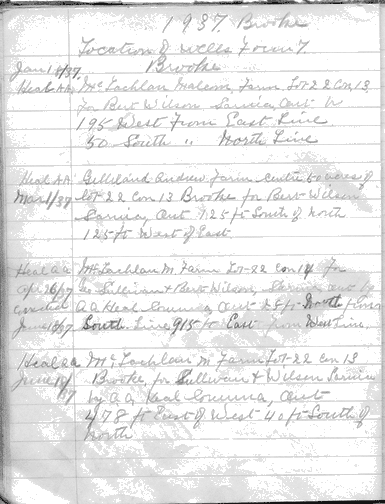 1937. Brooke
Location of wells Town 7
Jan 14/37. Brooke
Heal AA McLachlan Malcom, Farm Lot 22 Con, 13,
for Bert Wilson Sarnia, Ont
195 West From East Line
50 South " North Line
Heal A A Gilleland Andrew Farm centre 50 acres of
Mar 1/37 lot 22 Con 13 Brooke for Bert Wilson
Sarnia, Ont 725 ft South of North
125 ft West of East
Heal a a McLachlan M. Farm Lot-22 con 14 for
Geo Sullivan & Bert Wilson, Sarnia Ont by
A A Heal Ont 25 ft North
June South Line 915 ft East from West Line,
Heal a a McLachlan M Farm Lot-22 Con 13
June Brooke, for Sullivan & Wilson Sarnia
37 by A A Heal Ont
478 ft East of West 40 ft South of
North